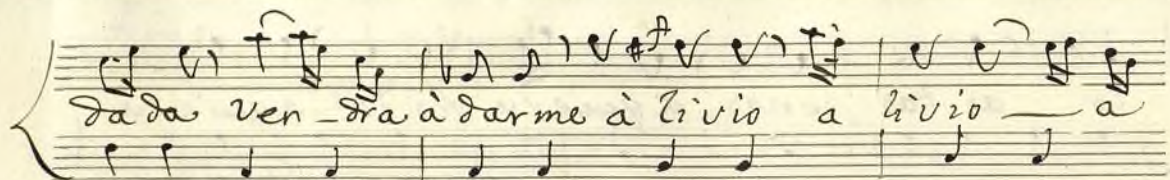 dada ven-dra à darme à livio a livio — a